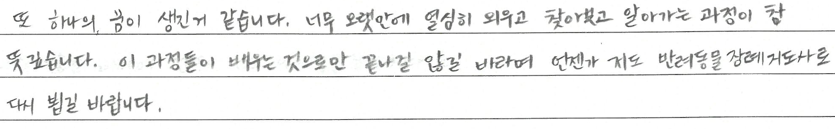 또 하나의 꿈이 생긴거 같습니다. 너무 오랫만에 열심히 외우고 찾아보고 알아가는 과정이 참
뜻깊습니다. 이 과정들이 배우는 것으로만 끝나질 않길 바라며 언젠가 저도 반려동물장례지도사로
다시 뵙길 바랍니다.